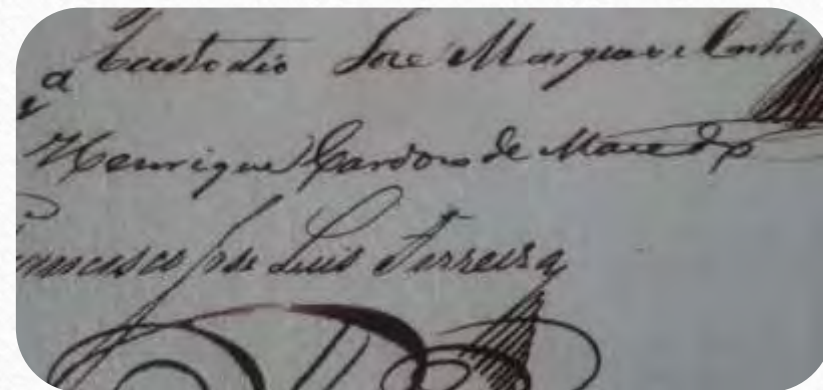 Custodio José Marques e Castro
Henrique Cardoso de Macedo
Francisco José Luis Ferreira